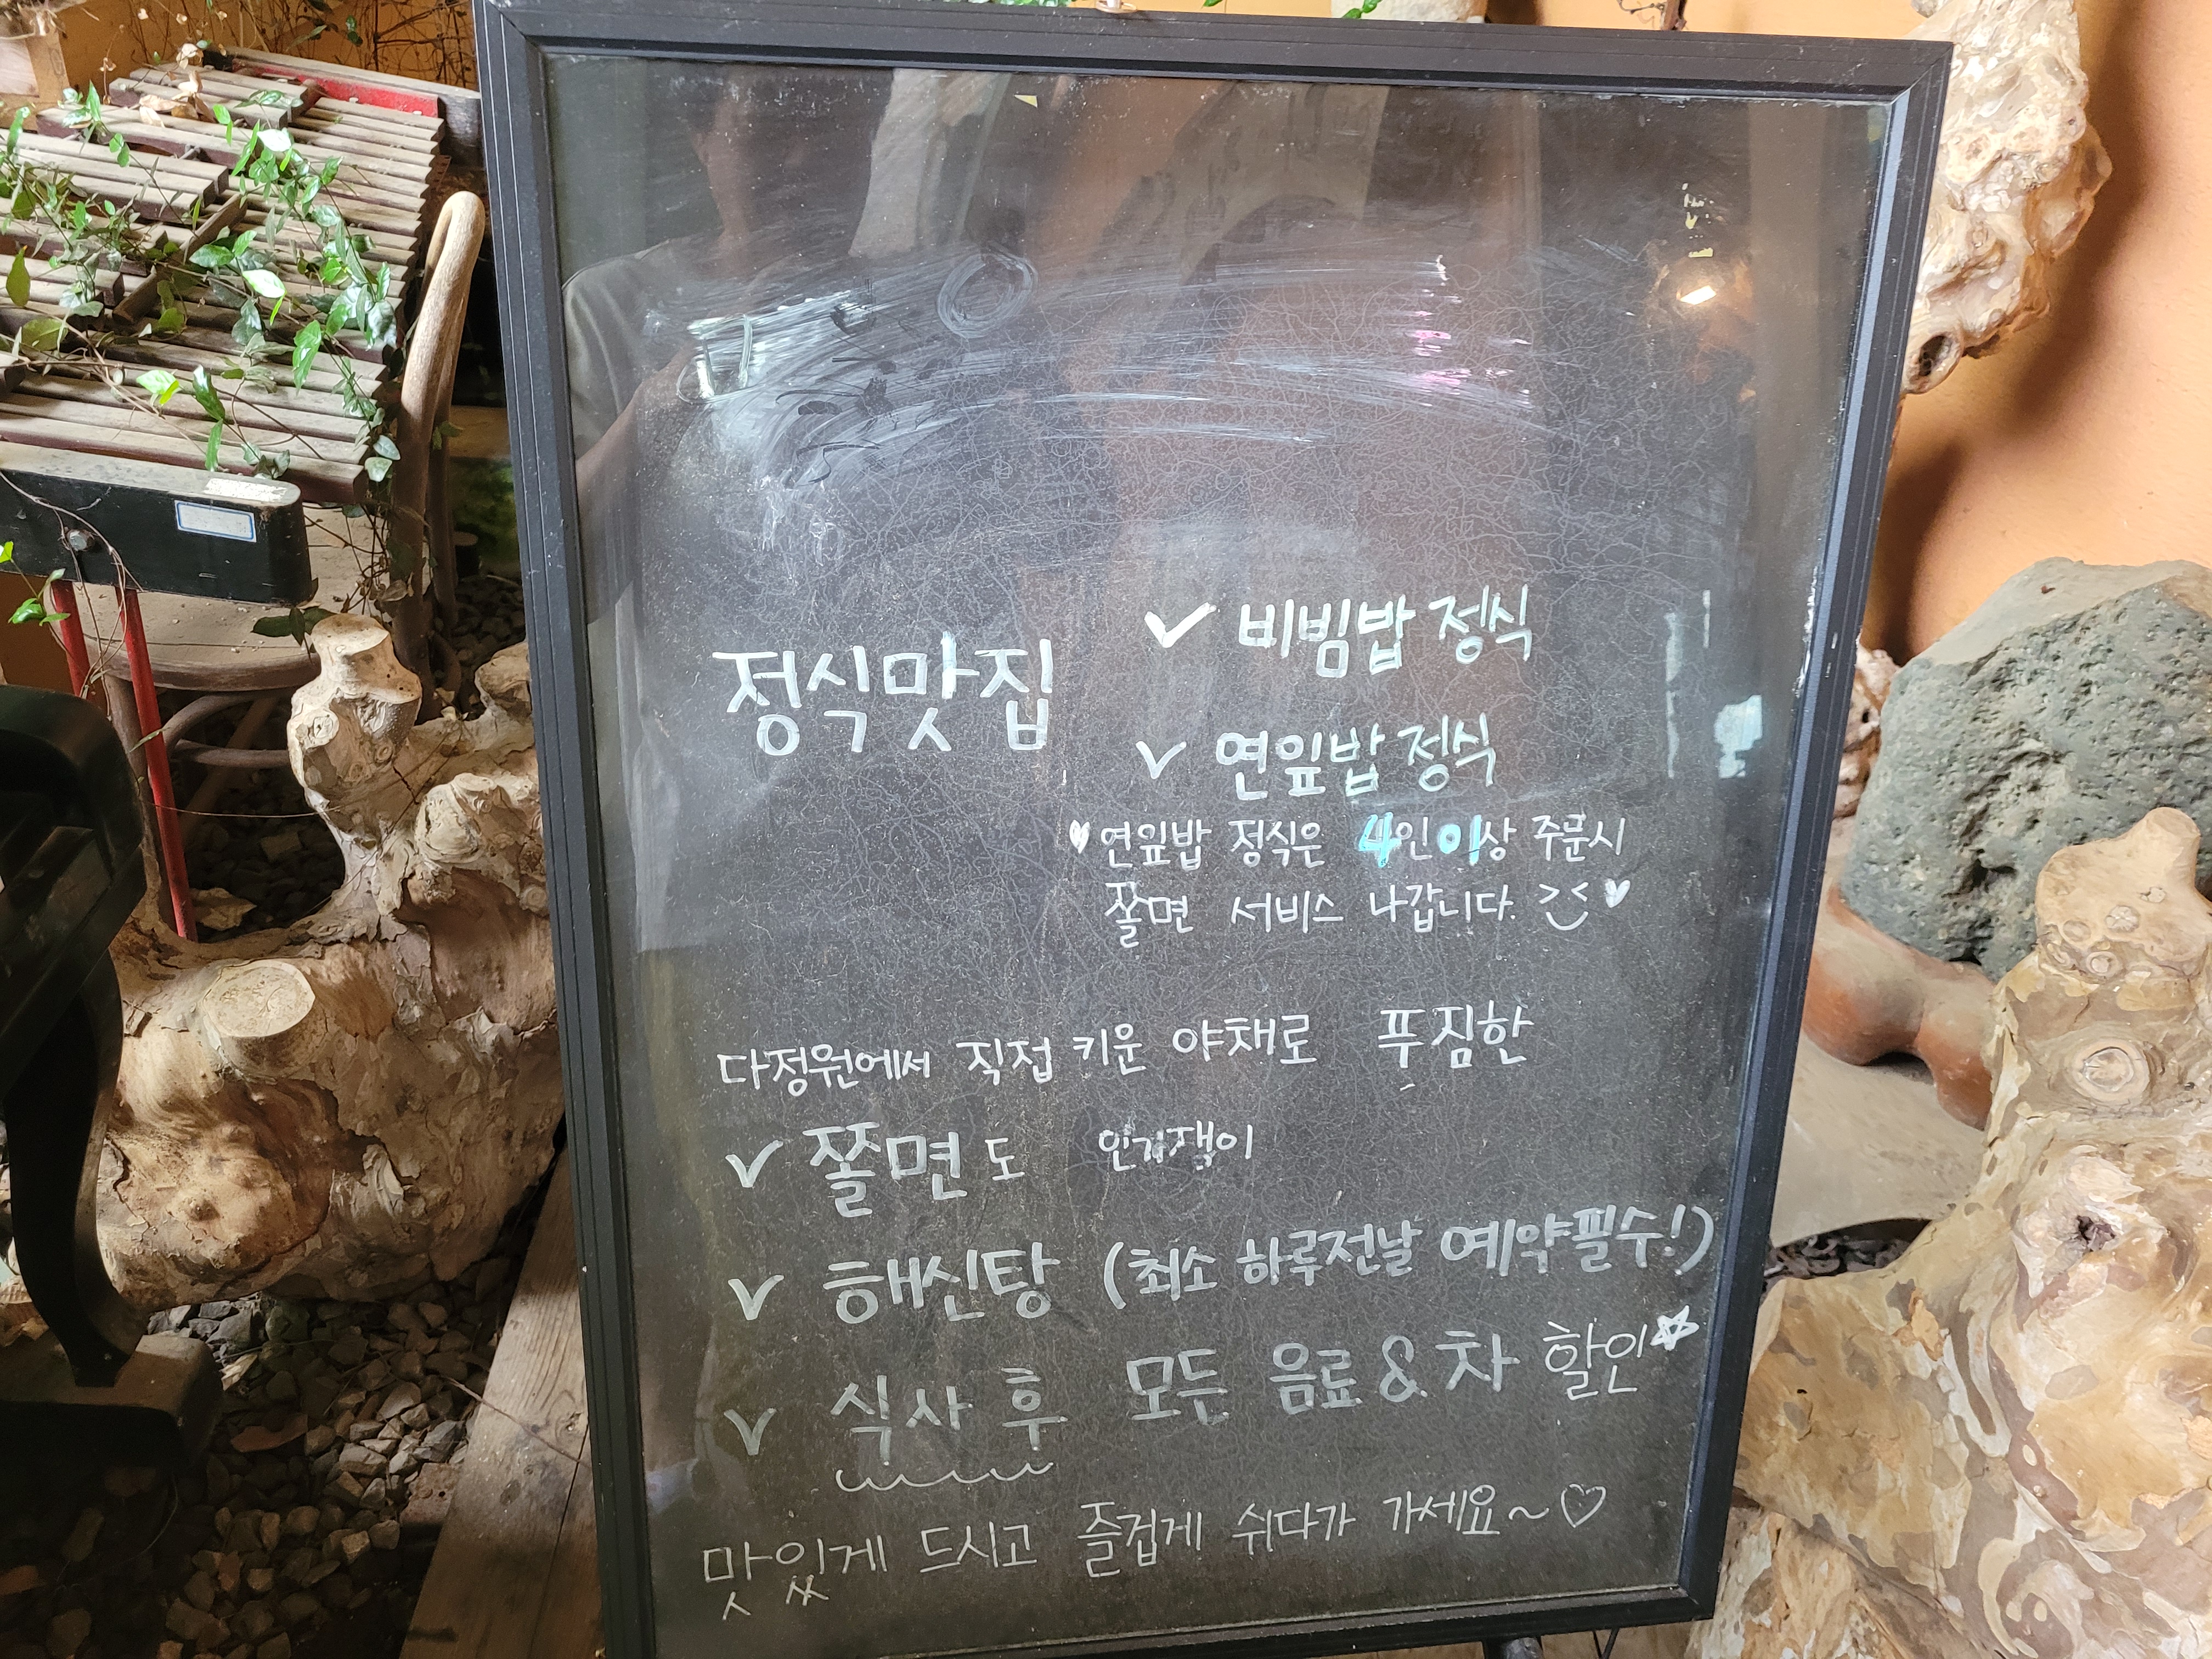 정식맛집
✓ 비빔밥 정식
✓ 연잎밥 정식
♥ 연잎밥 정식은 4인이상 주문시
쫄면 서비스 나갑니다. ><♥
다정원에서 직접 키운 야채로 푸짐한
✓ 쫄면도 인기쟁이
✓ 해신탕 (최소 하루전날 예약필수!)
✓ 식사 후 모든 음료 & 차 할인☆
맛있게 드시고 즐겁게 쉬다가 가세요~♡